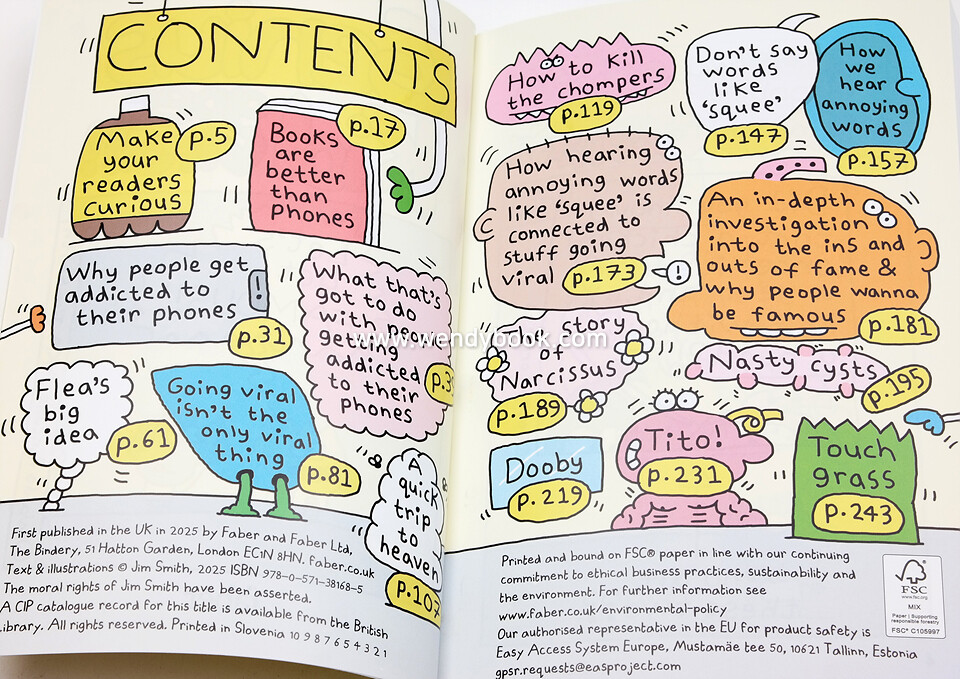 CONTENTS
Make
your
readers
curious
p.5
Books
are
better
than
phones
p.17
Why people get
addicted to
their phones
p.31
What that's
got to do
with
getting
addicted
to their
phones
Flea's
big
idea
p.61
Going viral
isn't the
only viral
thing
p.81
A
quick
trip
to
heaven
p.107
First published in the UK in 2025 by Faber and Faber Ltd,
The Bindery, 51 Hatton Garden, London EC1N 8HN. faber.co.uk
Text & illustrations © Jim Smith, 2025 ISBN 978-0-571-38168-5
The moral rights of Jim Smith have been asserted.
A CIP catalogue record for this title is available from the British
Library. All rights reserved. Printed in Slovenia 10 9 8 7 6 5 4 3 2 1
How to kill
the chompers
p.119
Don't say
words
like
'squee'
p.147
How
we
hear
annoying
words
p.157
How hearing
annoying words
like 'squee' is
connected to
stuff going
viral
p.173
!
An in-depth
investigation
into the ins and
outs of fame &
why people wanna
be famous
p.181
The story
of
Narcissus
p.189
Nasty cysts
p.195
Dooby
p.219
Tito!
p.231
Touch
grass
p.243
Printed and bound on FSC® paper in line with our continuing
commitment to ethical business practices, sustainability and
the environment. For further information see
www.faber.co.uk/environmental-policy
Our authorised representative in the EU for product safety is
Easy Access System Europe, Mustamäe tee 50, 10621 Tallinn, Estonia
gpsr.requests@easproject.com
FSC
www.fsc.org
MIX
Paper | Supporting
responsible forestry
FSC® C105997
www.wendybook.com